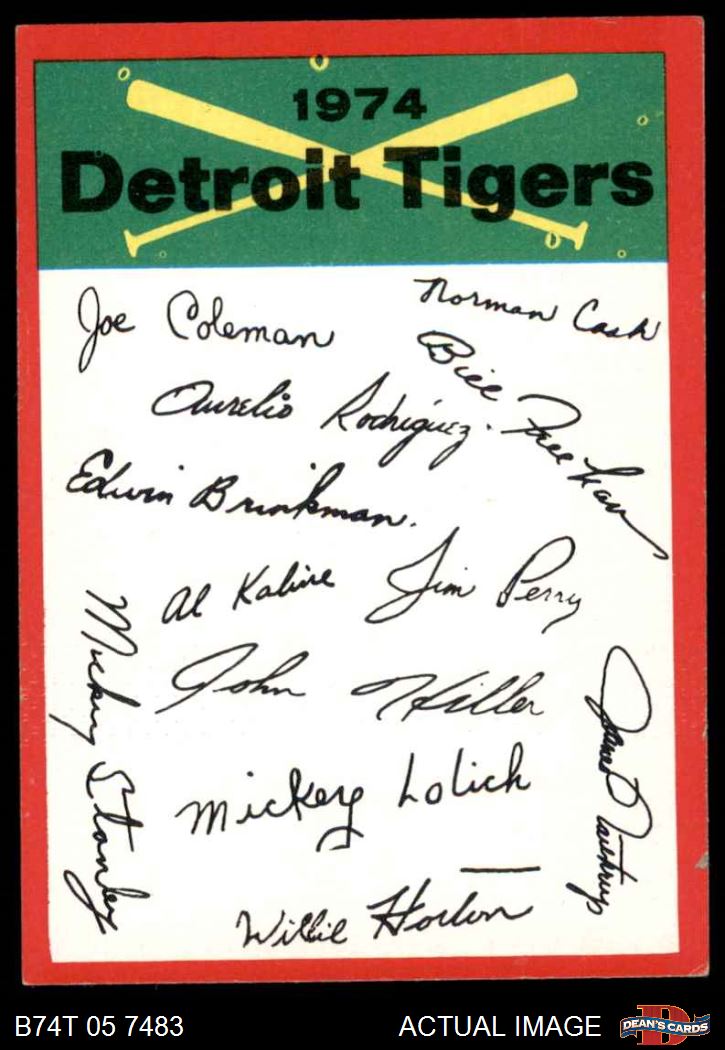 1974
Detroit Tigers
Joe Coleman
Norman Cash
Bill Freehan
Aurelio Rodriguez.
Edwin Brinkman.
Al Kaline
Jim Perry
Mickey Stanley
John Hiller
James Northrup
Mickey Lolich
Willie Horton
B74T 05 7483
ACTUAL IMAGE
D
DEAN'S CARDS